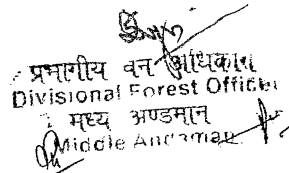 प्रभागीय वन अधिकारी
Divisional Forest Officer
मध्य अण्डमान
Middle Andaman